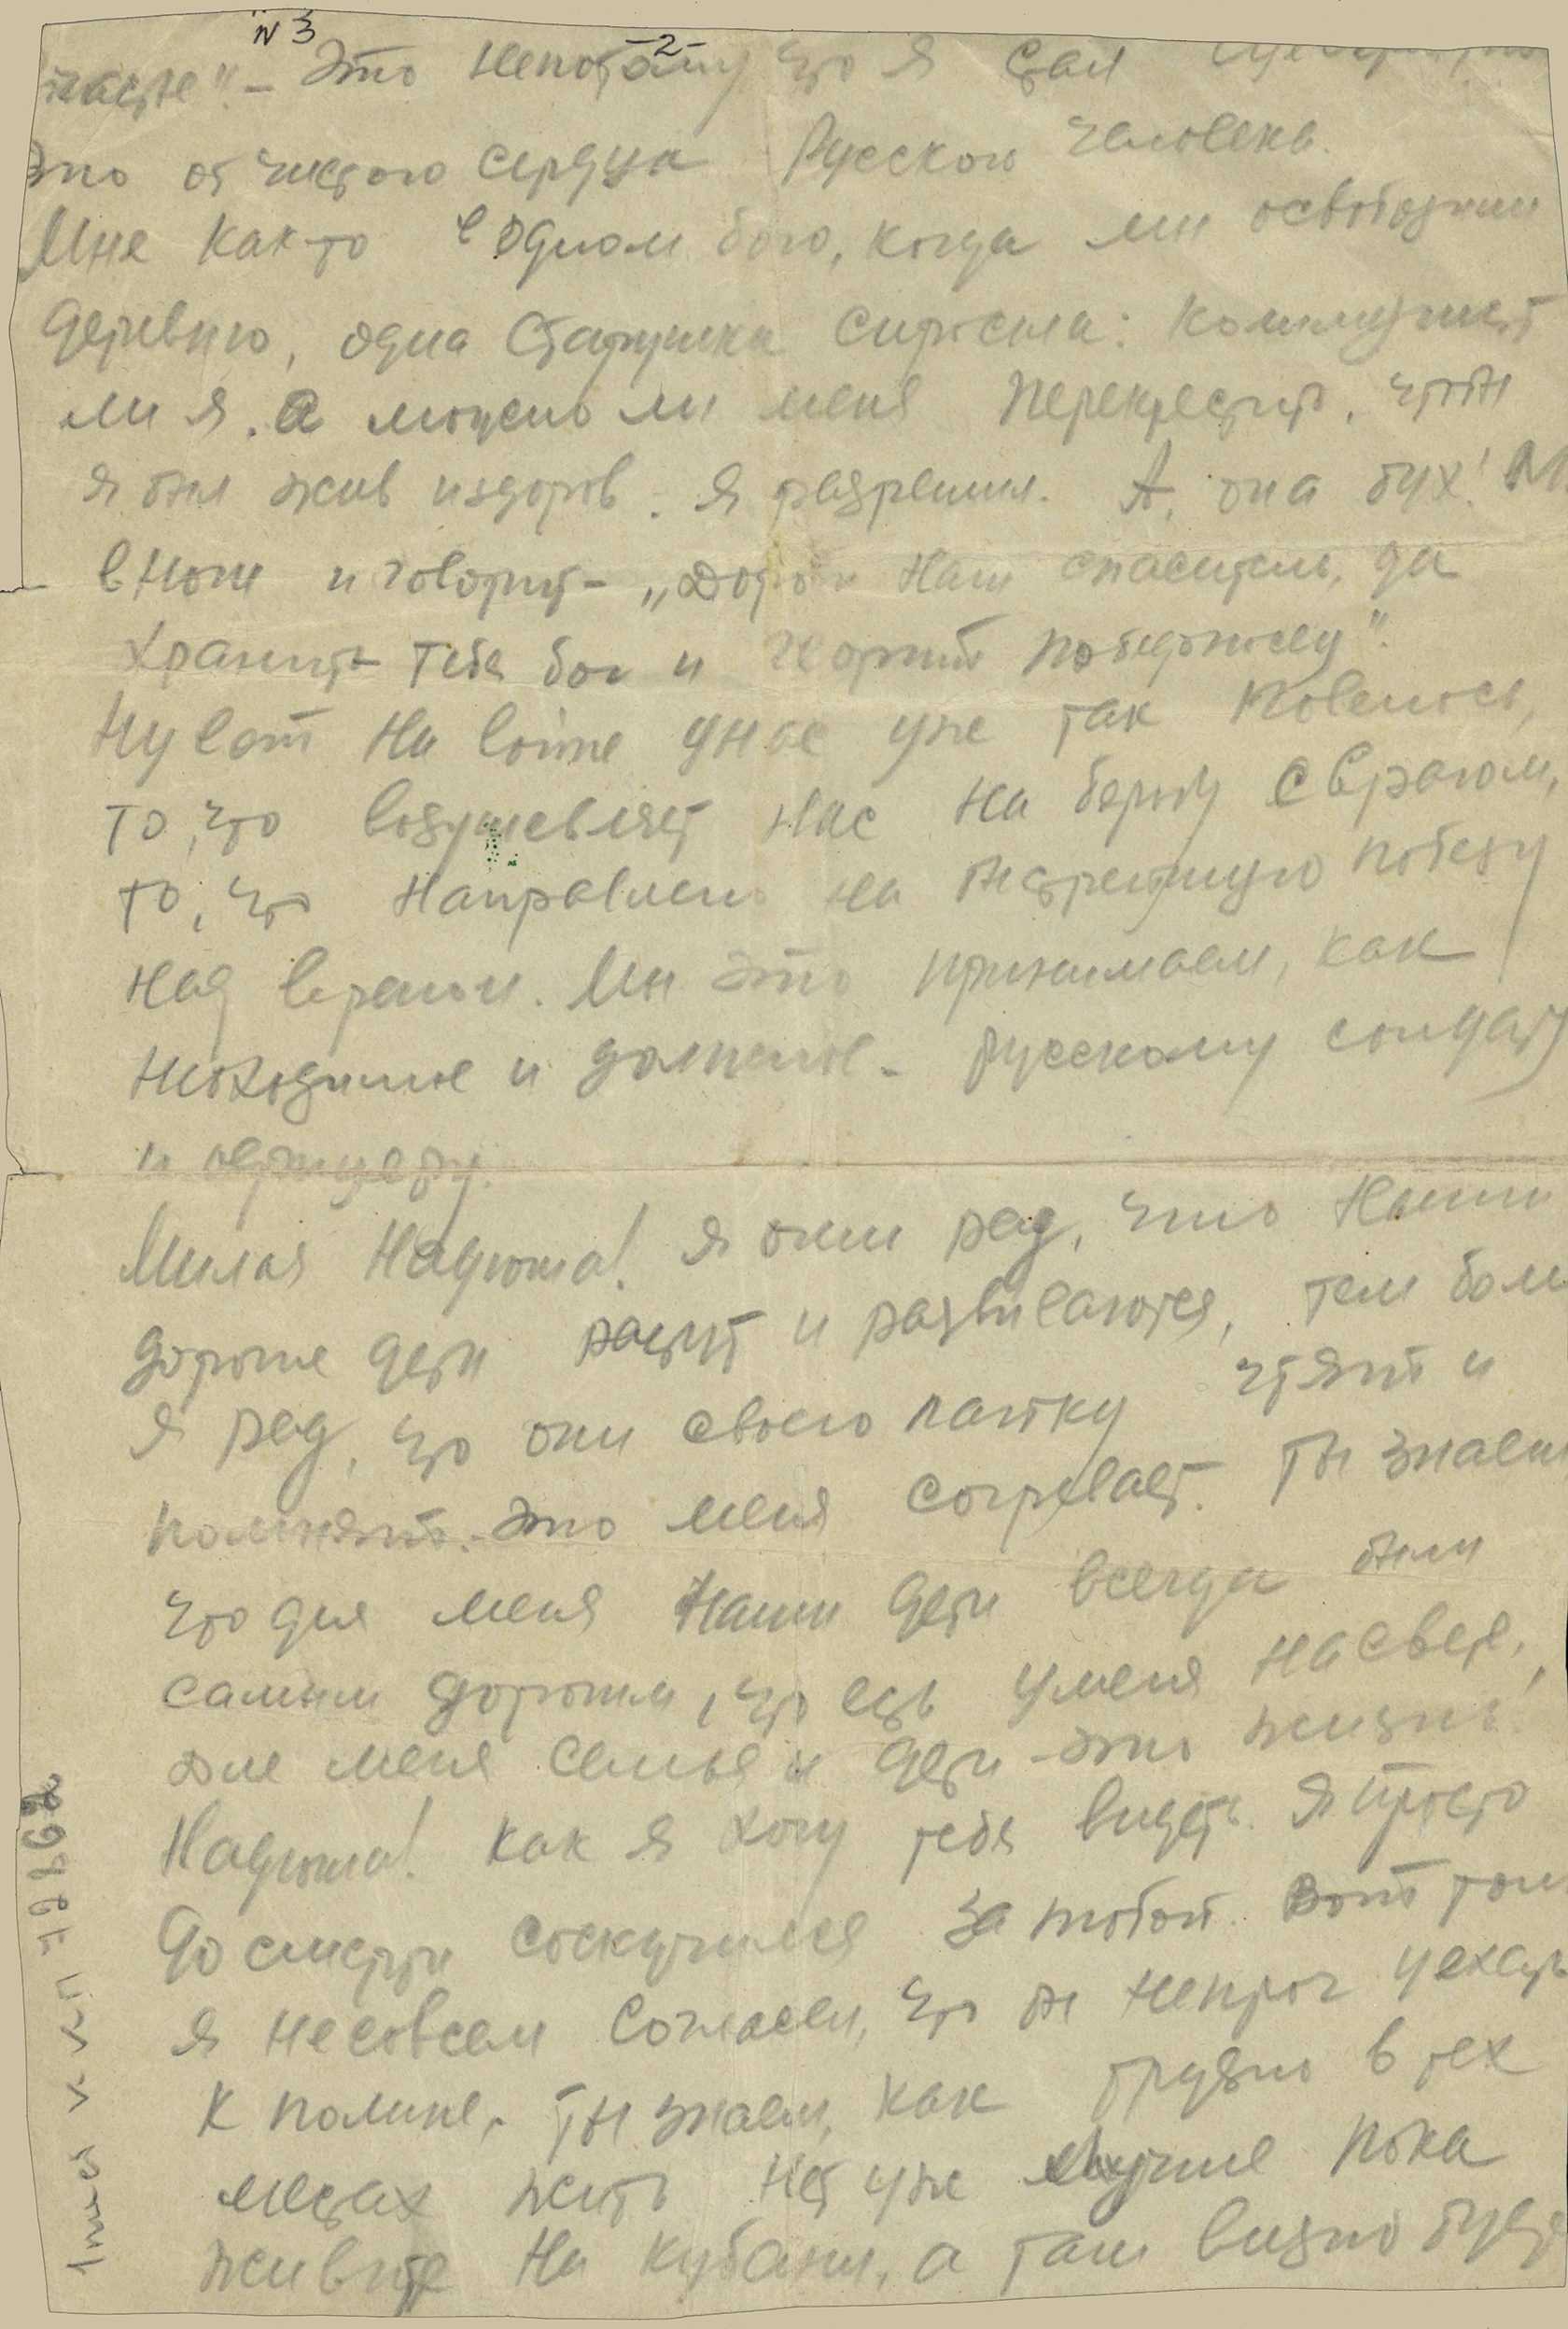 №3
-2-
счастье". - Это непотому что я стал
Это от чистого сердца Русского человека.
Мне как-то в одном бою, когда мы освободили
деревню, одна старушка спросила: Коммунист
ли я. а можно ли меня перекрестить. чтобы
я был жив и здоров. я разрешил. А, она бух!
в ноги и говорит - „Дорогой наш спаситель, да
хранит тебя бог и Георгий победоносец".
Ну вот на войне у нас уже так повелось,
то, что воодушевляет нас на борьбу с врагом,
то, что направлено на быстрейшую победу
над врагом. Мы это принимаем, как
необходимое и должное - русскому солдату
и офицеру.
Милая Надюша! я очень рад, что наши
дорогие дети растут и развиваются, тем боле
я рад, что они своего папку чтят и
помнят. Это меня согревает. Ты знаешь
что для меня наши дети всегда были
самым дорогим, что есть у меня на свете,
для меня семья и дети это жизнь!
Надюша! как я хочу тебя видеть. я просто
до смерти соскучился за тобой. вот только
я несовсем согласен, что ты непроч уехать
к полине, ты знаешь, как трудно в тех
местах жить нет уже лучше пока
живите на Кубани, а там видно будет